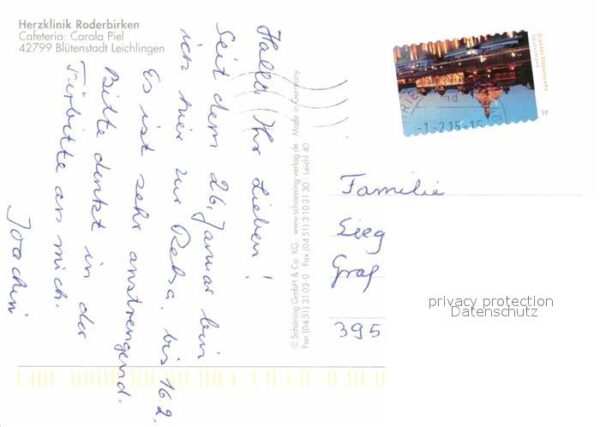 Herzklinik Roderbirken
Cafeteria: Carola Piel
42799 Blütenstadt Leichlingen
Hallo Ihr Lieben!
Seit dem 26. Januar bin
ich hier zur Reha. bis 16.2.
Es ist sehr anstrengend.
Bitte denkt in der
Fürbitte an mich.
Joachim
© Schöning GmbH & Co. KG · www.schoening-verlag.de · Made in Germany
Fon (04 51) 31 03 0 · Fax (04 51) 3 10 31 30 · Leichl 40
-1.-2.15-15
58
Familie
Sieg
Graf
395
privacy protection
Datenschutz